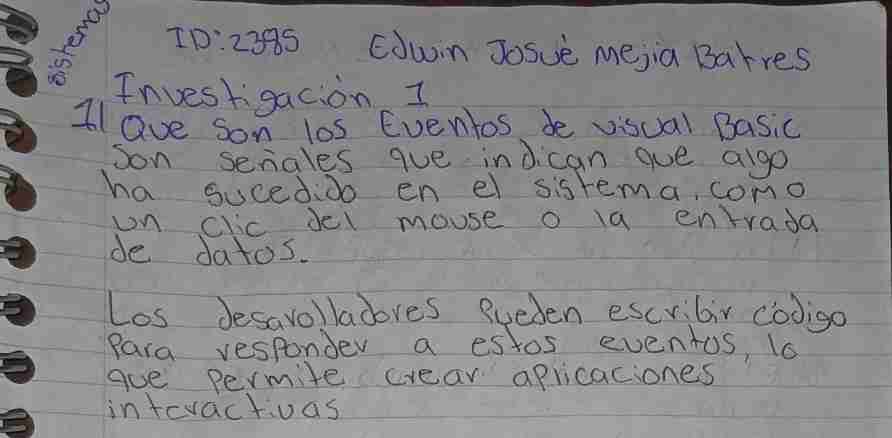 sistemas
ID:2395 Edwin Josué Mejia Batres
Investigación 1
1| Que son los Eventos de visual Basic
Son señales que indican que algo
ha sucedido en el sistema, como
un clic del mouse o la entrada
de datos.
Los desarolladores Pueden escribir código
Para responder a estos eventos, lo
que permite crear aplicaciones
interactivas